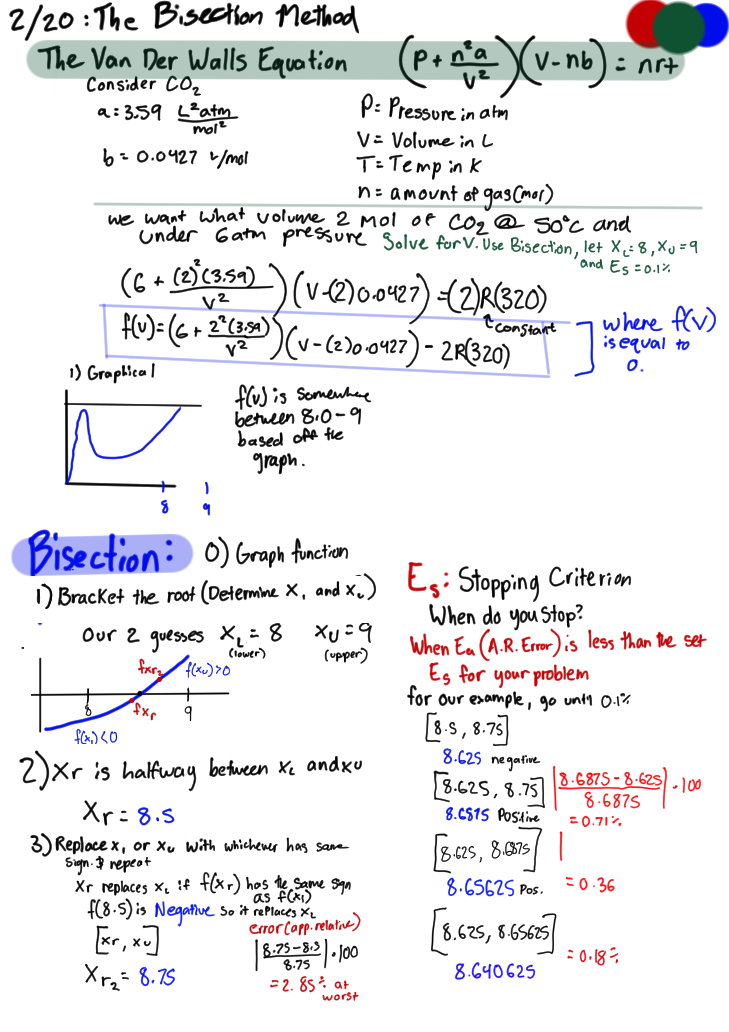 2/20: The Bisection Method
The Van Der Walls Equation (P + n²a/V²)(V - nb) = nrt
Consider CO₂
a = 3.59 L²atm/mol²
b = 0.0427 L/mol
P = Pressure in atm
V = Volume in L
T = Temp in K
n = amount of gas (mol)
we want what volume 2 mol of CO₂ @ 50°c and
under 6atm pressure Solve for V. Use Bisection, let X_L = 8, X_U = 9
and E_S = 0.1%
(6 + (2)²(3.59)/V²)(V-(2)0.0427) = (2)R(320)
constant
f(v) = (6 + 2²(3.59)/V²)(V-(2)0.0427) - 2R(320)
where f(V)
is equal to
0.
1) Graphical
f(v) is somewhere
between 8.0-9
based off the
graph.
8 9
Bisection: 0) Graph function
1) Bracket the root (Determine X_L and X_U)
Our 2 guesses X_L = 8 X_U = 9
(lower) (upper)
fxr₂ f(x_U)>0
8 fxr 9
f(x_L)<0
2) Xr is halfway between X_L and XU
Xr = 8.5
3) Replace X_L or X_U with whichever has same
sign. & repeat
Xr replaces X_L if f(Xr) has the same sign
as f(X_L)
f(8.5) is Negative so it replaces X_L
[Xr, XU]
Xr₂ = 8.75
error (app. relative)
|8.75-8.5/8.75| · 100
= 2.85% at
worst
E_S: Stopping Criterion
When do you stop?
When Ea (A.R. Error) is less than the set
E_S for your problem
for our example, go until 0.1%
[8.5, 8.75]
8.625 negative
[8.625, 8.75] |8.6875 - 8.625/8.6875| · 100
8.6875 Positive = 0.71%
[8.625, 8.6875]
8.65625 Pos. = 0.36
[8.625, 8.65625]
8.640625 = 0.18%